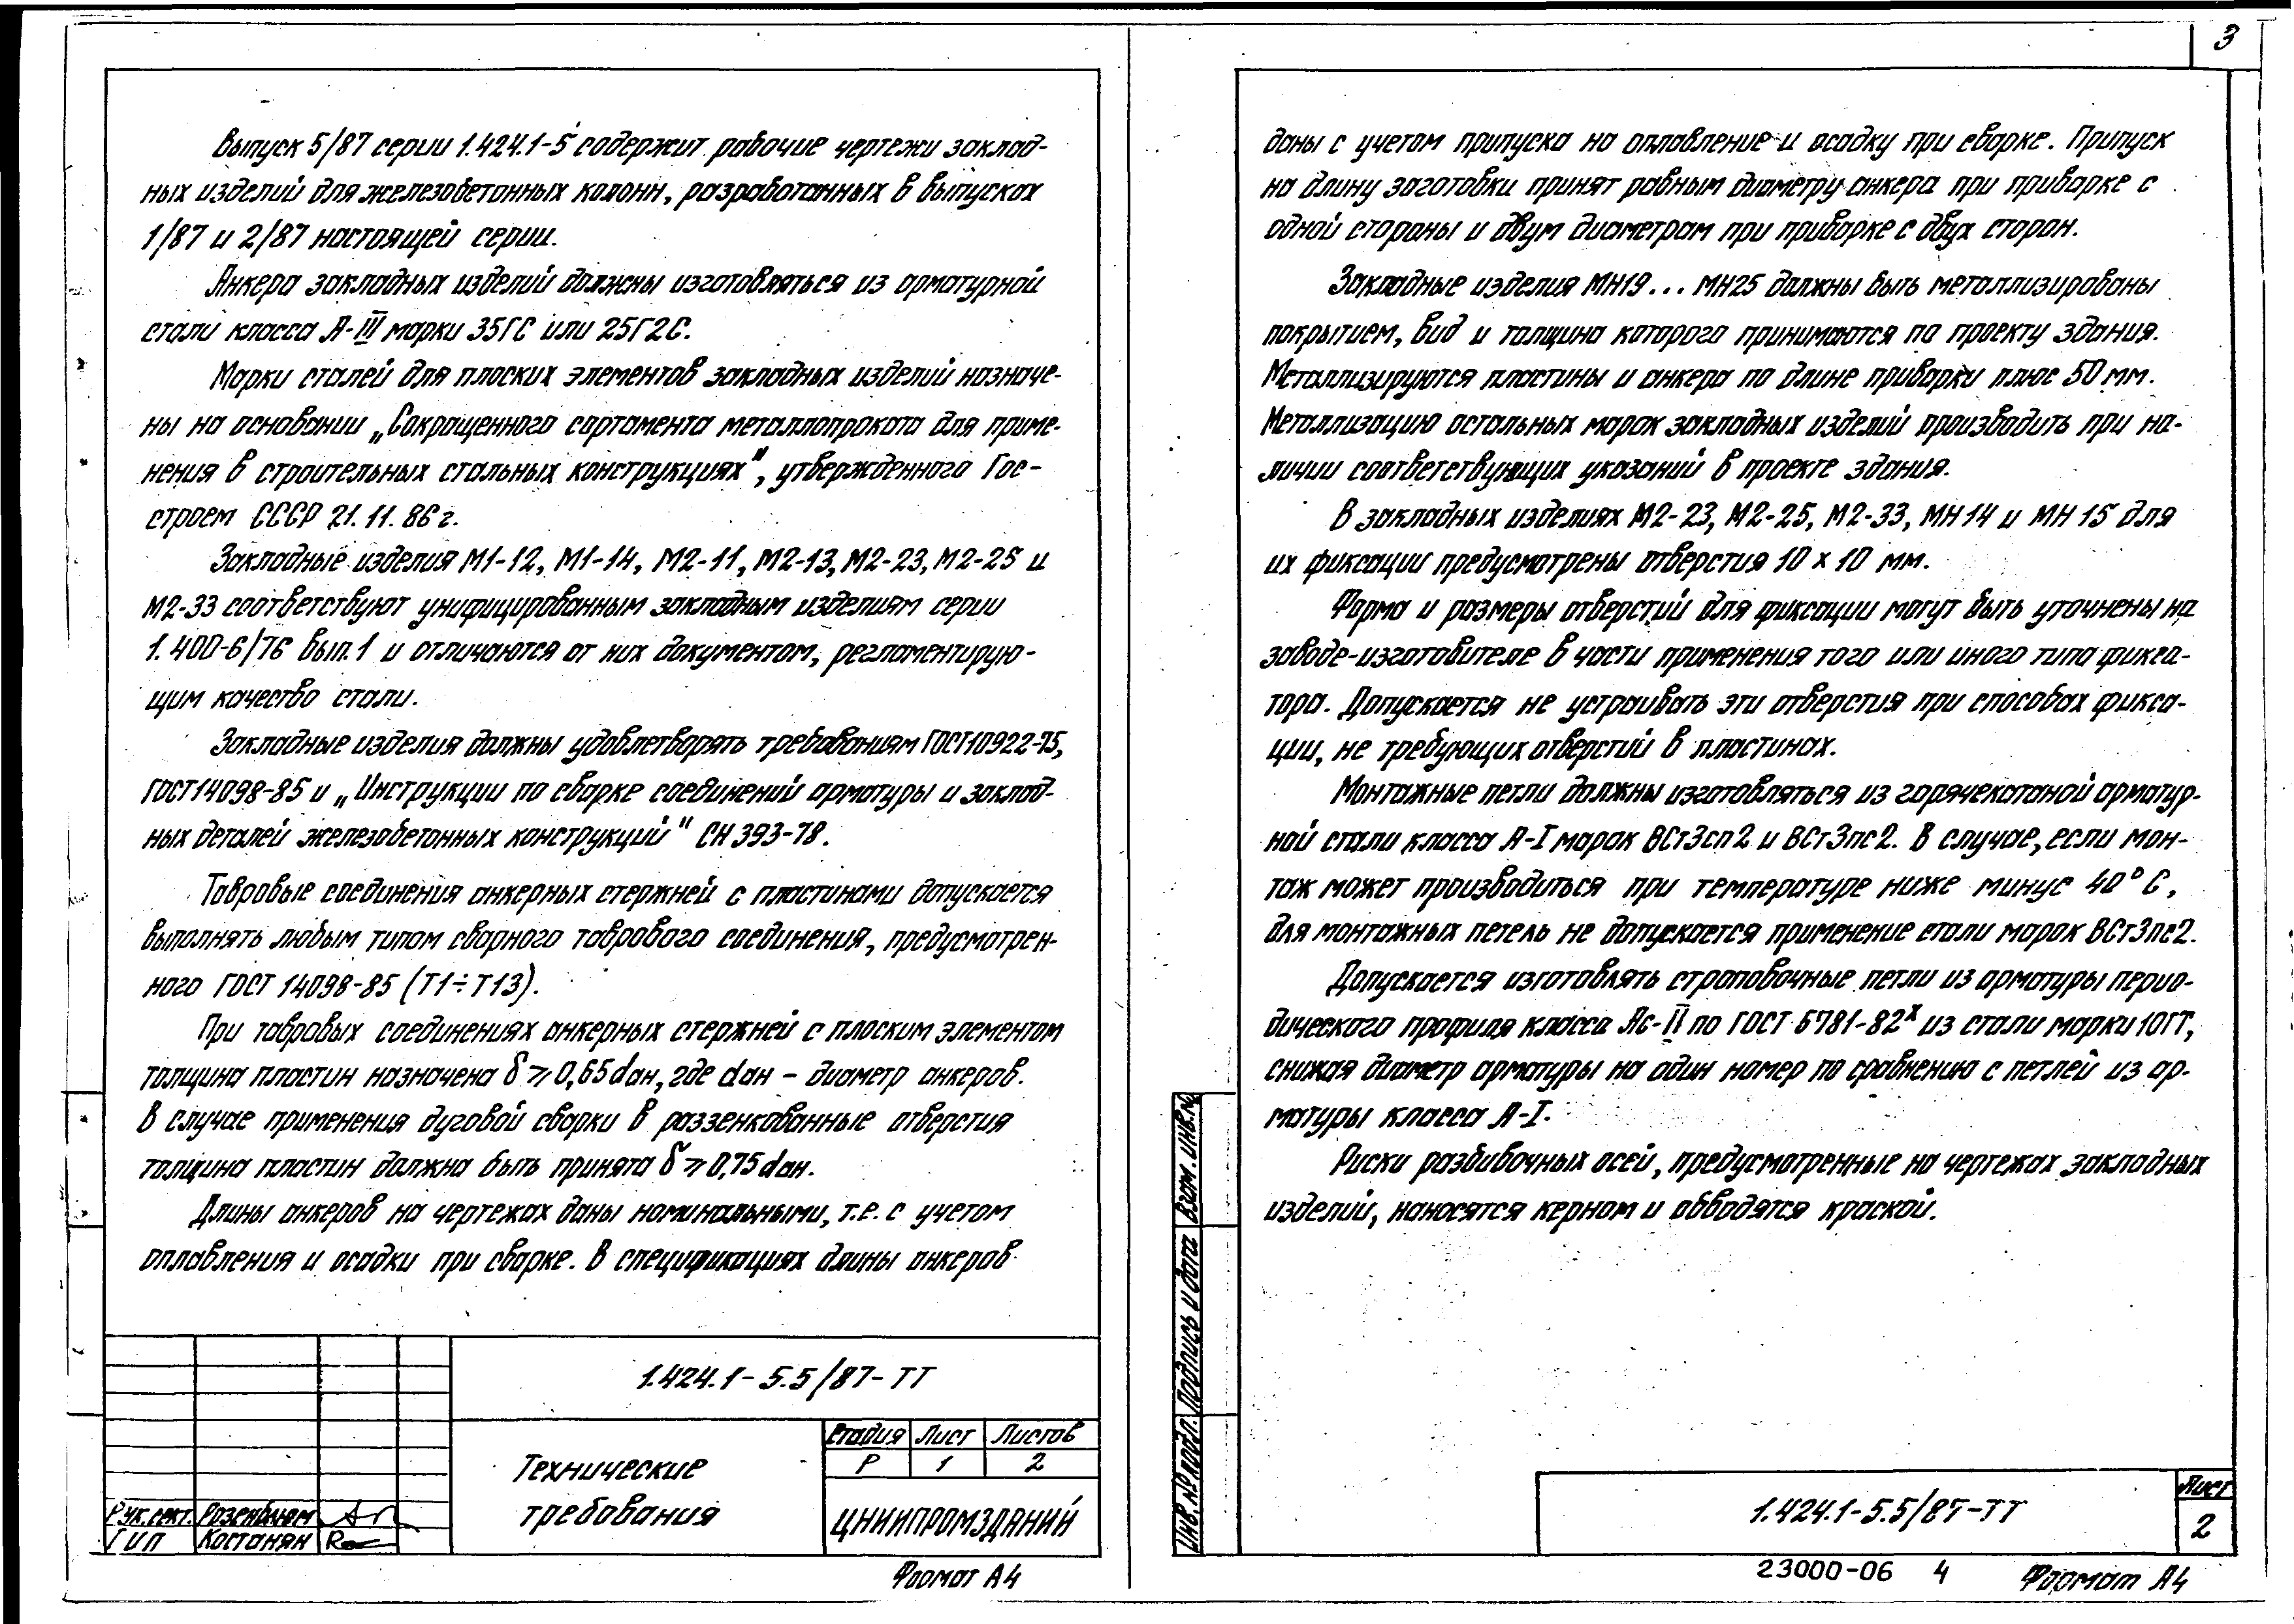 3
Выпуск 5/87 серии 1.424.1-5 содержит рабочие чертежи заклад-
ных изделий для железобетонных колонн, разработанных в выпусках
1/87 и 2/87 настоящей серии.
Анкера закладных изделий должны изготовляться из арматурной
стали класса А-III марки 35ГС или 25Г2С.
Марки сталей для плоских элементов закладных изделий назначе-
ны на основании „Сокращенного сортамента металлопроката для приме-
нения в строительных стальных конструкциях", утвержденного Гос-
строем СССР 21.11.86г.
Закладные изделия М1-12, М1-14, М2-11, М2-13, М2-23, М2-25 и
М2-33 соответствуют унифицированным закладным изделиям серии
1.400-6/76 вып.1 и отличаются от них документом, регламентирую-
щим качество стали.
Закладные изделия должны удовлетворять требованиям ГОСТ10922-75,
ГОСТ14098-85 и „Инструкции по сварке соединений арматуры и заклад-
ных деталей железобетонных конструкций" СН 393-78.
Тавровые соединения анкерных стержней с пластинами допускается
выполнять любым типом сварного таврового соединения, предусмотрен-
ного ГОСТ 14098-85 (Т1÷Т13).
При тавровых соединениях анкерных стержней с плоским элементом
толщина пластин назначена δ ⩾ 0,65dан, где dан – диаметр анкеров.
В случае применения дуговой сварки в раззенкованные отверстия
толщина пластин должна быть принята δ ⩾ 0,75dан.
Длины анкеров на чертежах даны номинальными, т.е. с учетом
оплавления и осадки при сварке. В спецификациях длины анкеров
1.424.1-5.5/87-ТТ
Технические
требования
Стадия Лист Листов
Р 1 2
ЦНИИПРОМЗДАНИЙ
Рук.сект. Розенблюм
ГИП Костанян
Формат А4
даны с учетом припуска на оплавление и осадку при сварке. Припуск
на длину заготовки принят равным диаметру анкера при приварке с
одной стороны и двум диаметрам при приварке с двух сторон.
Закладные изделия МН19... МН25 должны быть металлизированы
покрытием, вид и толщина которого принимаются по проекту здания.
Металлизируются пластины и анкера по длине приварки плюс 50 мм.
Металлизацию остальных марок закладных изделий производить при на-
личии соответствующих указаний в проекте здания.
В закладных изделиях М2-23, М2-25, М2-33, МН14 и МН15 для
их фиксации предусмотрены отверстия 10 х 10 мм.
Форма и размеры отверстий для фиксации могут быть уточнены на
заводе-изготовителе в части применения того или иного типа фикса-
тора. Допускается не устраивать эти отверстия при способах фикса-
ции, не требующих отверстий в пластинах.
Монтажные петли должны изготовляться из горячекатаной арматур-
ной стали класса А-I марок ВСт3сп2 и ВСт3пс2. В случае, если мон-
таж может производиться при температуре ниже минус 40°С,
для монтажных петель не допускается применение стали марок ВСт3пс2.
Допускается изготовлять строповочные петли из арматуры перио-
дического профиля класса Ас-II по ГОСТ 5781-82х из стали марки 10ГТ,
снижая диаметр арматуры на один номер по сравнению с петлей из ар-
матуры класса А-I.
Риски разбивочных осей, предусмотренные на чертежах закладных
изделий, наносятся керном и обводятся краской.
Взам. инв.№
Подпись и дата
Инв. № подл.
1.424.1-5.5/87-ТТ
Лист
2
23000-06 4
Формат А4